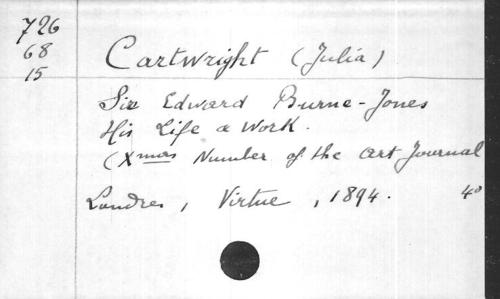 726
68
15
Cartwright (Julia)
Sir Edward Burne-Jones
His Life a Work.
(Xmas Number of the Art Journal
Londres, Virtue, 1894. 4º